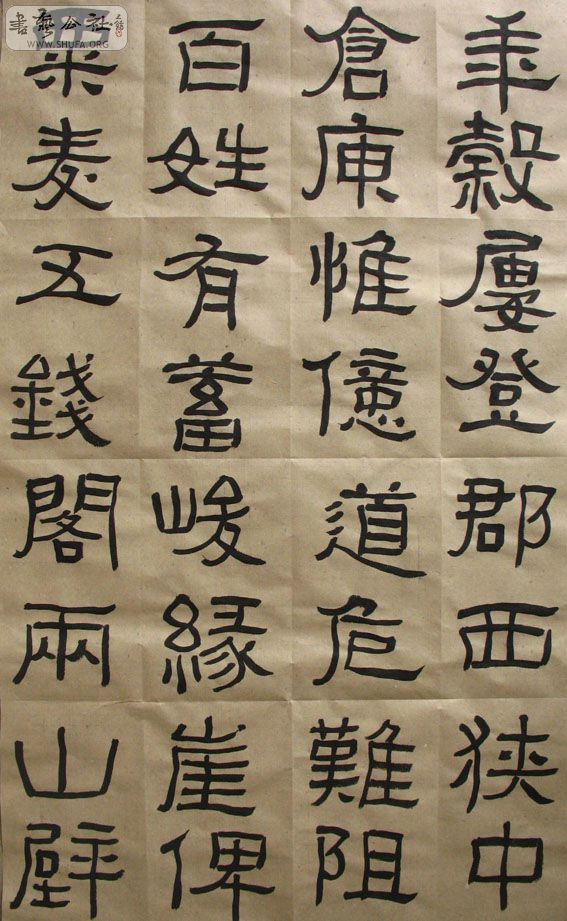 年穀屢登
倉庾惟億
百姓有蓄
粟麥五錢
郡西狹中
道危難阻
峻緣崖俾
閣兩山壁
書藝公社
WWW.SHUFA.ORG